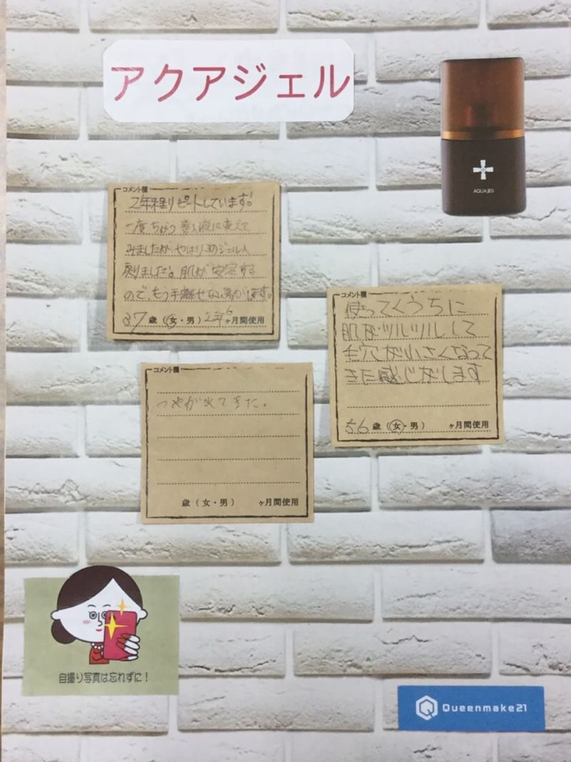 アクアジェル
AQUAJEL
コメント欄
2年程リピートしています。
一度ちがう美容液に変えて
みましたが、やはりこのジェルに
戻りました。肌が安定する
ので、もう手離せない気がします。
37歳（女・男）2年ヶ月間使用
コメント欄
使ってくうちに
肌がツルツルして
毛穴が小さくなって
きた感じがします
56歳（女・男）ヶ月間使用
コメント欄
つやが出てきた。
歳（女・男）ヶ月間使用
自撮り写真は忘れずに！
Queenmake21